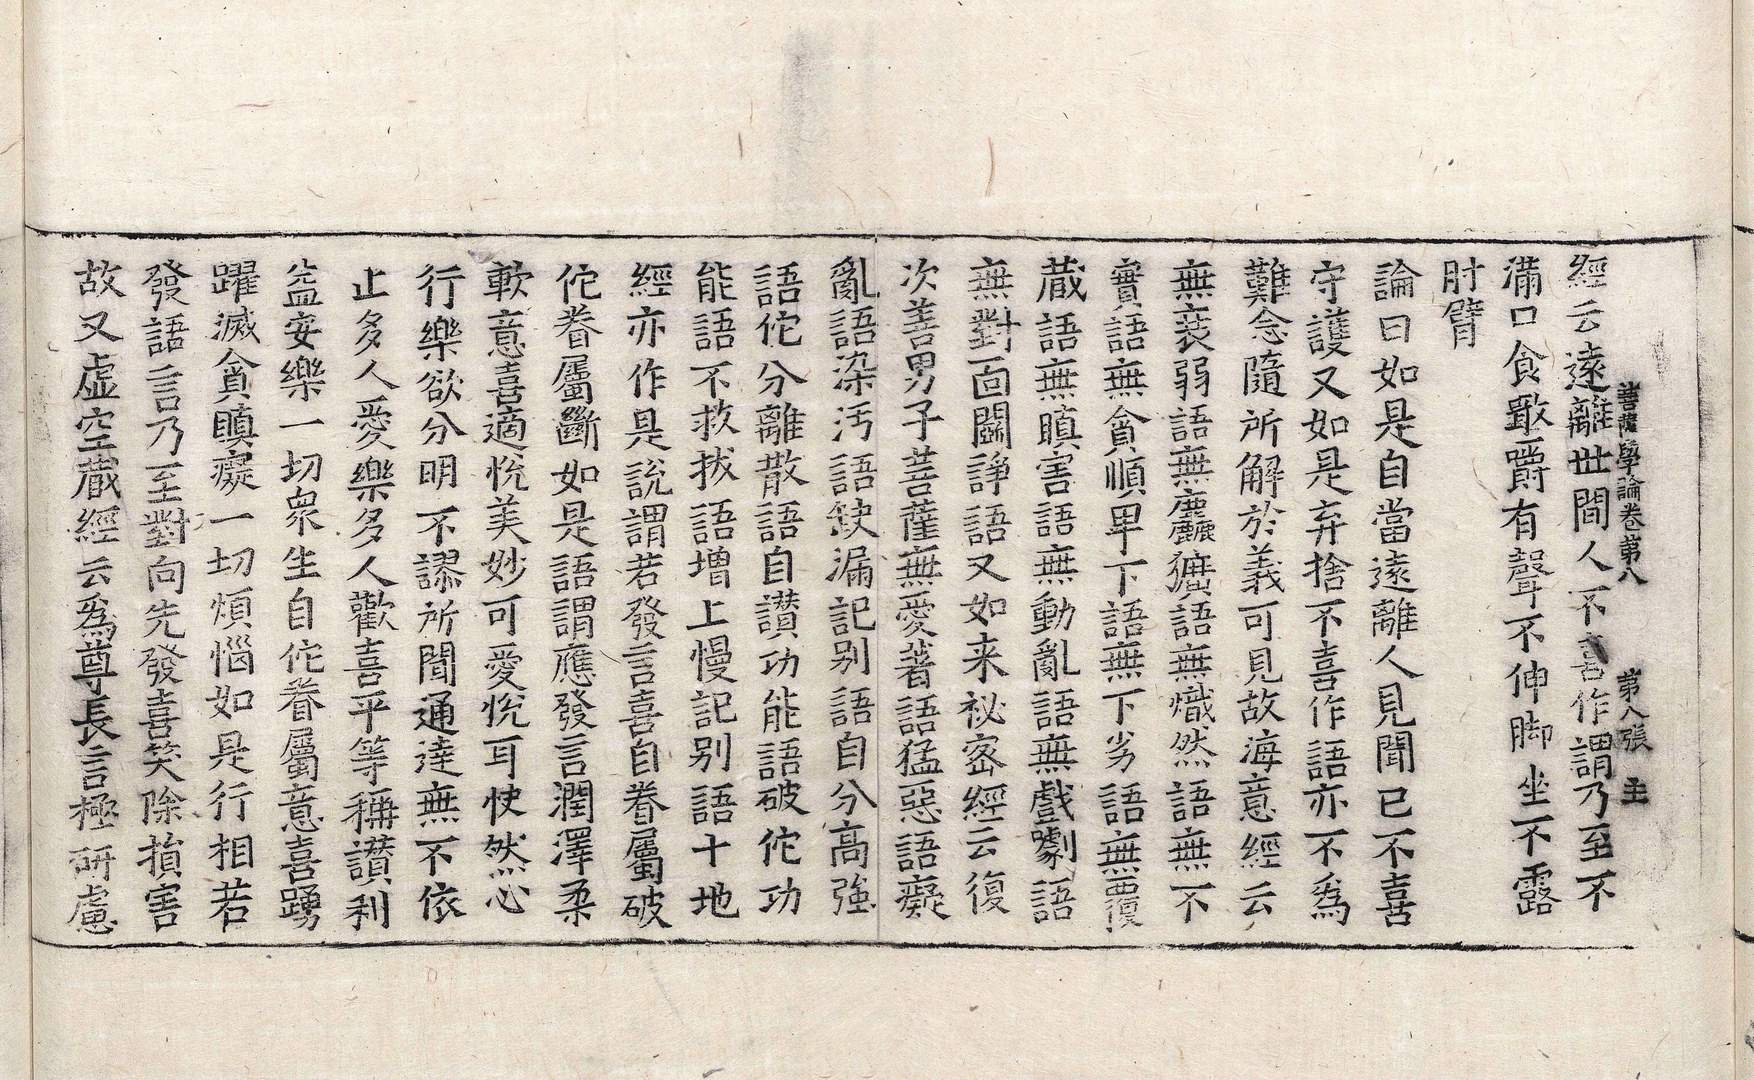 菩薩學論卷第八　第八張　主
經云遠離世間人不喜作謂乃至不
滿口食敢嚼有聲不伸脚坐不露
肘臂
論曰如是自當遠離人見聞已不喜
守護又如是弃捨不喜作語亦不爲
難念隨所解於義可見故海意經云
無裝弱語無麤獷語無熾然語無不
實語無貪順卑下語無下劣語無覆
蔵語無瞋害語無動亂語無戲劇語
無對面鬬諍語又如来祕密經云復
次善男子菩薩無愛著語猛惡語癡
亂語染汚語缺漏記别語自分高強
語佗分離散語自讃功能語破佗功
能語不救拔語增上慢記别語十地
經亦作是說謂若發言喜自眷屬破
佗眷屬斷如是語謂應發言潤澤柔
軟意喜適悅美妙可愛悅耳快然心
行樂欲分明不謬所聞通達無不依
止多人愛樂多人歡喜平等稱讃利
益安樂一切衆生自佗眷屬意喜踴
躍滅貪瞋癡一切煩惱如是行相若
發語言乃至對向先發喜笑除損害
故又虛空蔵經云爲尊長言極研慮